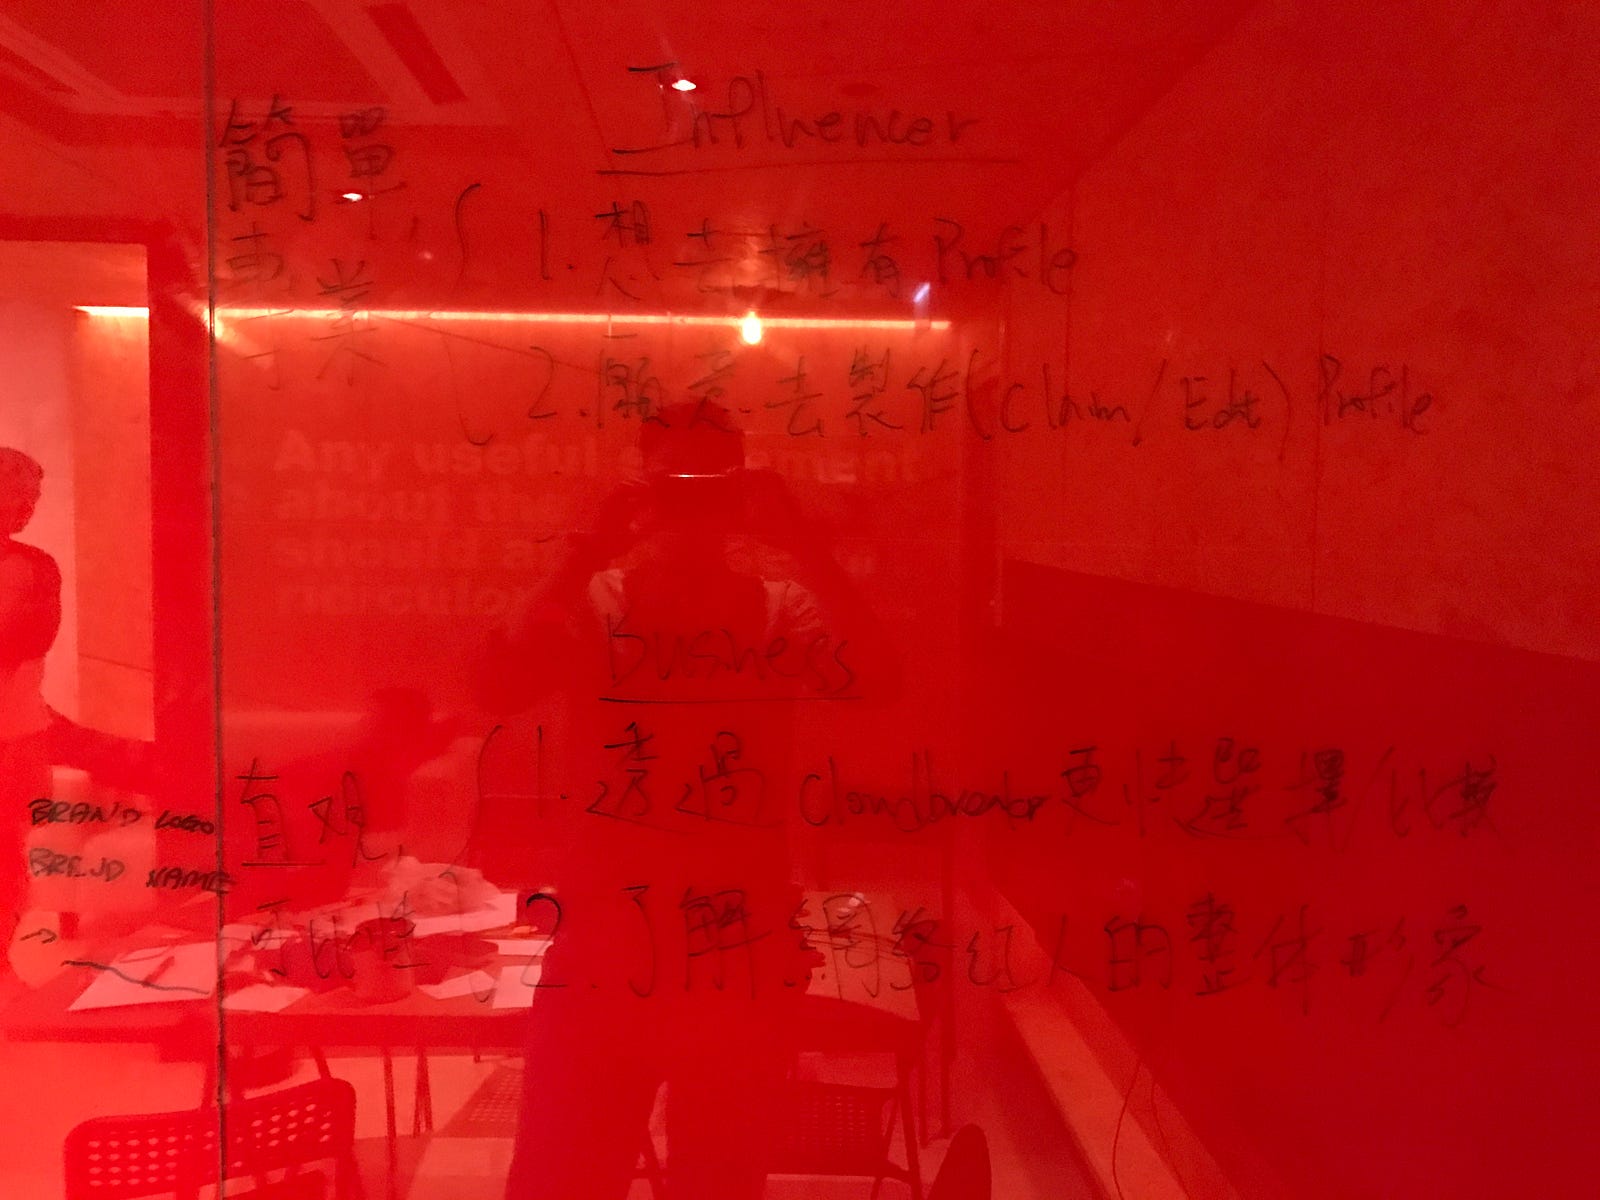 Influencer
簡單,
專業
1. 想去擁有 Profile
2. 願意去製作(Claim/Edit) Profile
Any useful statement
about the
should a
ridiculou
Business
直观,
可比性
1. 透過 Cloudbreakr 更快選擇/比較
2. 了解網絡紅人的整体形象
BRAND LOGO
BRAND NAME
→